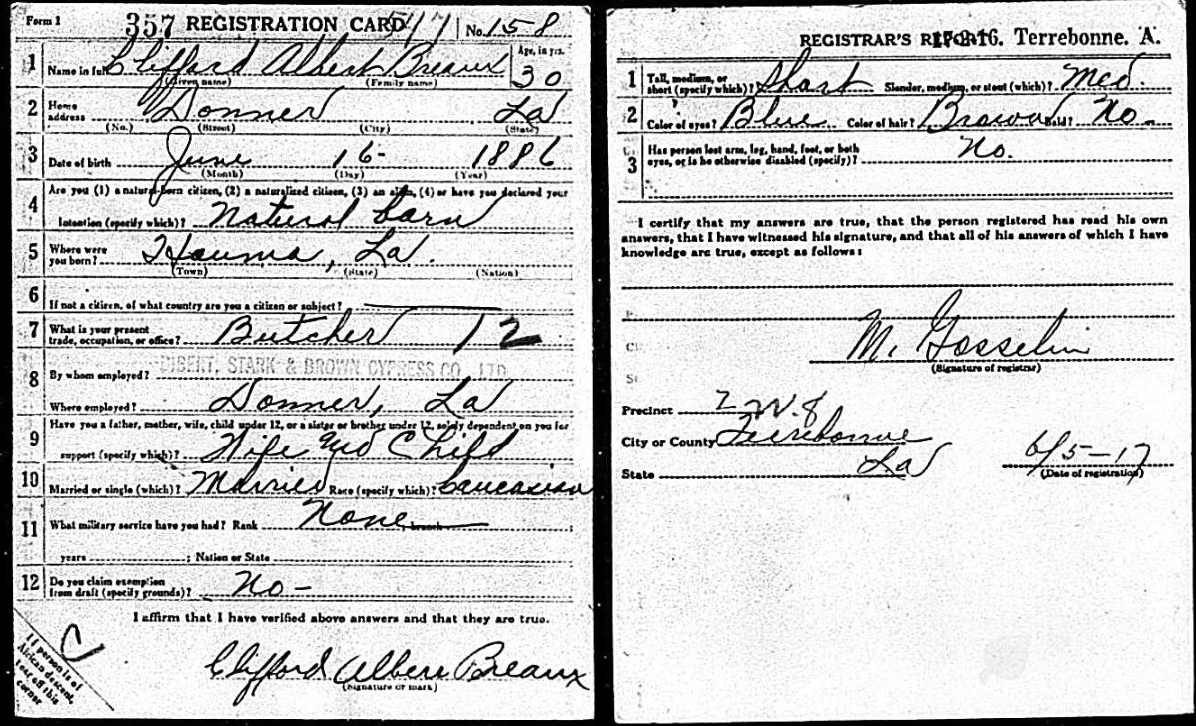 Form 1 357 REGISTRATION CARD 5/7 No. 158
1 Name in full Clifford Albert Breaux Age, in yrs. 30
(Given name) (Family name)
2 Home address Donner La
(No.) (Street) (City) (State)
3 Date of birth June 16- 1886
(Month) (Day) (Year)
4 Are you (1) a natural-born citizen, (2) a naturalized citizen, (3) an alien, (4) or have you declared your
intention (specify which)? Natural born
5 Where were you born? Houma, La.
(Town) (State) (Nation)
6 If not a citizen, of what country are you a citizen or subject?
7 What is your present trade, occupation, or office? Butcher 12
8 By whom employed? DIBERT, STARK & BROWN CYPRESS CO., LTD
Where employed? Donner, La
9 Have you a father, mother, wife, child under 12, or a sister or brother under 12, solely dependent on you for
support (specify which)? Wife and Child
10 Married or single (which)? Married Race (specify which)? Caucasian
11 What military service have you had? Rank None branch
years ; Nation or State
12 Do you claim exemption from draft (specify grounds)? No -
I affirm that I have verified above answers and that they are true.
C
If person is of
African descent,
tear off this
corner
Clifford Albert Breaux
(Signature or mark)
REGISTRAR'S REPORT 17-3-16. Terrebonne. A.
1 Tall, medium, or short (specify which)? Short Slender, medium, or stout (which)? Med.
2 Color of eyes? Blue Color of hair? Brown Bald? No -
3 Has person lost arm, leg, hand, foot, or both eyes, or is he otherwise disabled (specify)? No.
I certify that my answers are true, that the person registered has read his own
answers, that I have witnessed his signature, and that all of his answers of which I have
knowledge are true, except as follows:
M. Gosselin
(Signature of registrar)
Precinct 2 W. 8
City or County Terrebonne
State La 6/5-17
(Date of registration)